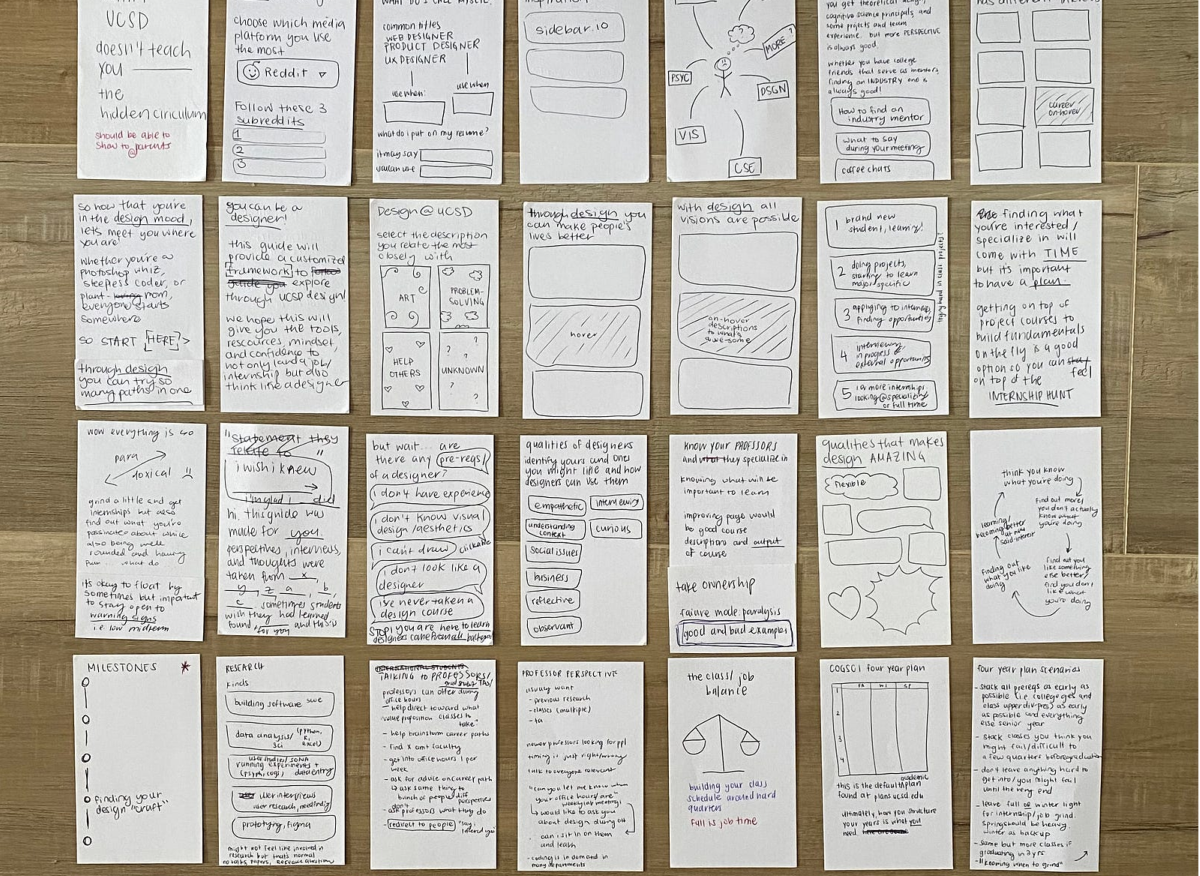 UCSD
doesn't teach
you
the
hidden ciriculum
should be able to
show to parents
choose which media
platform you use
the most
Reddit
Follow these 3
subreddits
1
2
3
common titles
WEB DESIGNER
PRODUCT DESIGNER
UX DESIGNER
use when:
use when:
what do i put on my resume?
it may say
you can use
sidebar.io
MORE?
PSYC
DSGN
VIS
CSE
cognitive science principals, and
some projects and team
experience. but more PERSPECTIVE
is always good.
whether you have college
friends that serve as mentors,
finding an INDUSTRY one is
always good!
How to find an
industry mentor
what to say
during your meeting
coffee chats
career
on hover
so now that you're
in the design mood,
lets meet you where
you are!
whether you're a
photoshop whiz,
sleepless coder, or
plant-loving mom,
everyone starts
somewhere
so START [HERE]>
through design
you can try so
many paths in one
you can be a
designer!
this guide will
provide a customized
framework to
guide you explore
through UCSD design
we hope this will
give you the tools,
rescources, mindset
and confidence to
not only land a job/
internship but also
think like a designer
Design @ UCSD
select the description
you relate the most
closely with
ART
PROBLEM-
SOLVING
HELP
OTHERS
UNKNOWN
through design you
can make people's
lives better
hover
with design all
visions are possible
on-hover
descriptions
to what's
awesome
1 brand new
student, learning!
2 doing projects,
starting to learn
major specific
3 applying to internships,
finding opportunities
4 interviewing
in progress of
external opportunities
5 1 or more internships,
looking @ specializing
or full time
finding what
you're interested/
specialize in will
come with TIME
but its important
to have a plan.
getting on top of
project courses to
build fundamentals
on the fly is a good
option so you can feel
on top of the
INTERNSHIP HUNT
wow everything is so
para
doxical
grind a little and get
internships but also
find out what you're
passionate about while
also being well
rounded and having
fun... what do
its okay to float by
sometimes but important
to stay open to
warning signs
i.e. low midterm
"statement they
relate to"
i wish i knew
i'm glad i did
hi, this guide was
made for you.
perspectives, interviews,
and thoughts were
taken from x,
y, z, a, b,
c, sometimes students
wish they had learned
found and this is
for you
but wait... are
there any pre-reqs
of a designer?
i don't have experience
i don't know visual
design/aesthetics
i can't draw
clickable
i don't look like a
designer
i've never taken a
design course
STOP! you are here to learn
qualities of designers
identify yours and ones
you might like and how
designers can use them
empathetic
interviewing
understanding
context
curious
social issues
business
reflective
observant
KNOW YOUR PROFESSORS
and what they specialize in
knowing what will be
important to learn
improving page would
be good course
descriptions and output
of course
take ownership
failure mode: paralysis
good and bad examples
qualities that makes
design AMAZING
flexible
think you know
what you're doing
find out more/
you don't actually
know what
you're doing
find out you
like something
else better/
find you don't
like what
you're doing
finding out
what you like
doing
MILESTONES *
finding your
design "craft"
RESEARCH
kinds
building software
data analysis/
sci
(python,
R,
excel)
running experiments +
(psych, cogs)
data entry
user interviews
user research, needfinding
prototyping, figma
might not feel like involved in
research but thats normal
TALKING to PROFESSORS/
professors can offer during
office hours
- help direct toward what
classes to
take
- help brainstorm career paths
- find x amt faculty
- get into office hours 1 per
week
- ask for advice on career path
↳ ask same thing to
bunch of people, diff
perspectives
- ask professors what they do
- redirect to people
PROFESSOR PERSPECTIVE
usually want
- previous research
- classes (multiple)
- ta
newer professors looking for ppl
timing is just right/wrong
talk to everyone relevant
"can you let me know when
your office hours/are"
weekly lab meeting?
↳ would like to ask you
about design, during out
can i sit in on them
and learn
- coding is in demand in
many departments
the class/job
balance
building your class
schedule around hard
quarters
Fall is job time
COGSCI four year plan
FA WI SP
1
2
3
4
this is the default plan
academic
found at plans.ucsd.edu
ultimately, how you structure
your years is what you
need
four year plan scenarios
- stack all prereqs as early as
possible (i.e. college ges and
class upper div-preqs) as early
as possible and everything
else senior year
- stack classes you think you
might fail/difficult to
a few quarters before graduation
- don't leave anything hard to
get into/you might fail
until the very end
- leave fall or winter light
for internship/job grind.
Spring should be heavy.
winter as backup
- same but more classes if
graduating in 3 yrs
- "knowing when to grind"